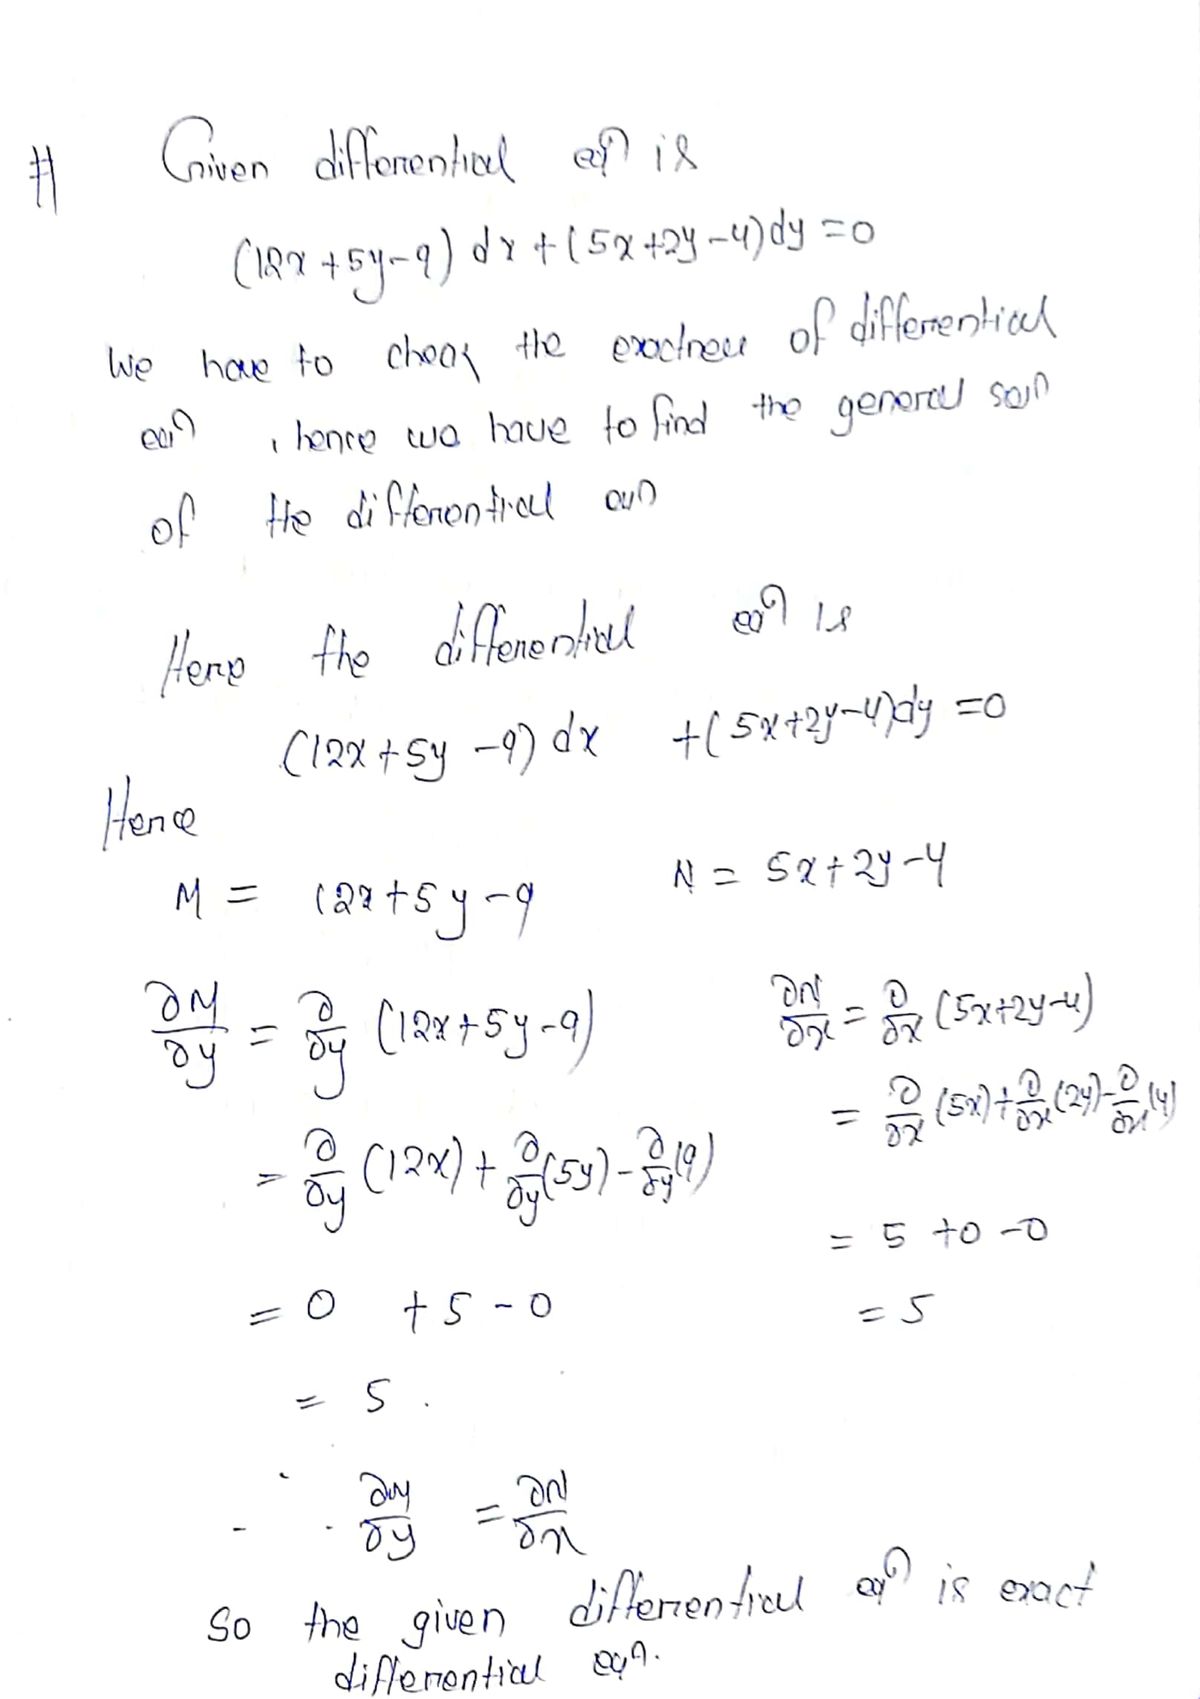 # Given differential eqn is
(12x + 5y - 9) dx + (5x + 2y - 4) dy = 0
We have to check the exactness of differential
eqn , hence we have to find the general soln
of the differential eqn
Here the differential eqn is
(12x + 5y - 9) dx + (5x + 2y - 4) dy = 0
Hence
M = 12x + 5y - 9 N = 5x + 2y - 4
∂M/∂y = ∂/∂y (12x + 5y - 9) ∂N/∂x = ∂/∂x (5x + 2y - 4)
= ∂/∂y (12x) + ∂/∂y (5y) - ∂/∂y (9) = ∂/∂x (5x) + ∂/∂x (2y) - ∂/∂x (4)
= 0 + 5 - 0 = 5 + 0 - 0
= 5 . = 5
∴ ∂M/∂y = ∂N/∂x
So the given differential eqn is exact
differential eqn.